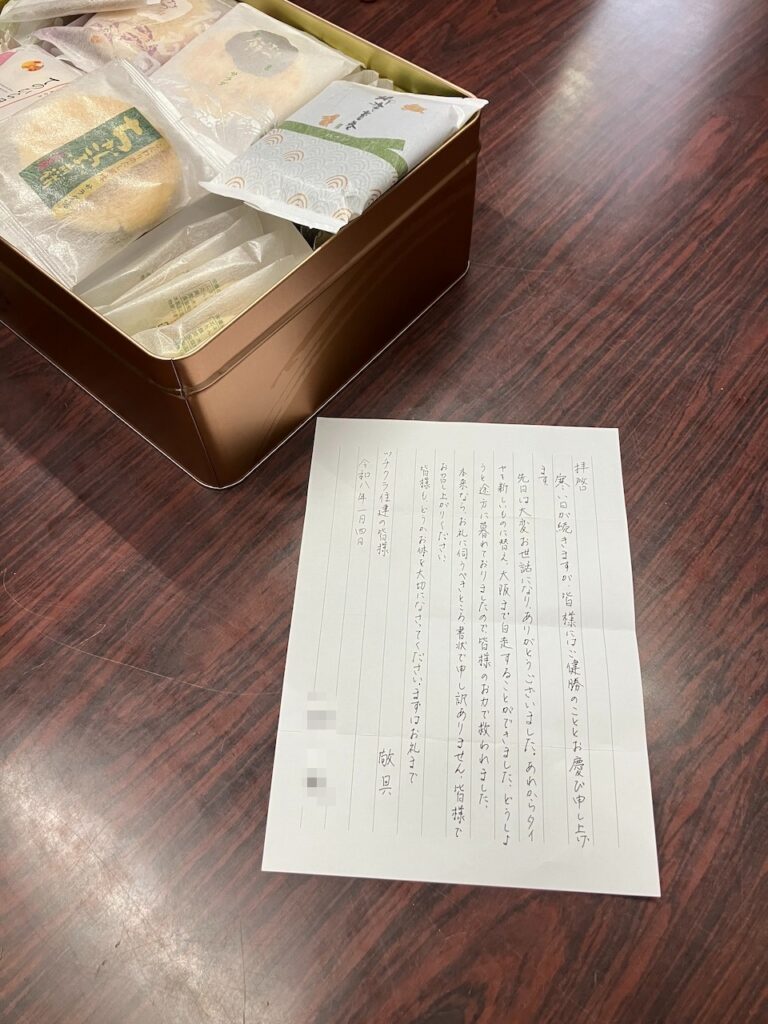 拝啓
寒い日が続きますが皆様にはご健勝のこととお慶び申し上げ
ます。
先日は大変お世話になり、ありがとうございました。あれからタイ
ヤを新しいものに替え、大阪まで自走することができました。どうしよ
うと途方に暮れておりましたので、皆様のお力で救われました。
本来なら、お礼に伺うべきところ書状で申し訳ありません。皆様で
お召し上がりください。
皆様も、どうかお体を大切になさってください。まずはお礼まで
敬具
ツチクラ住建の皆様
令和八年一月四日
サラダ